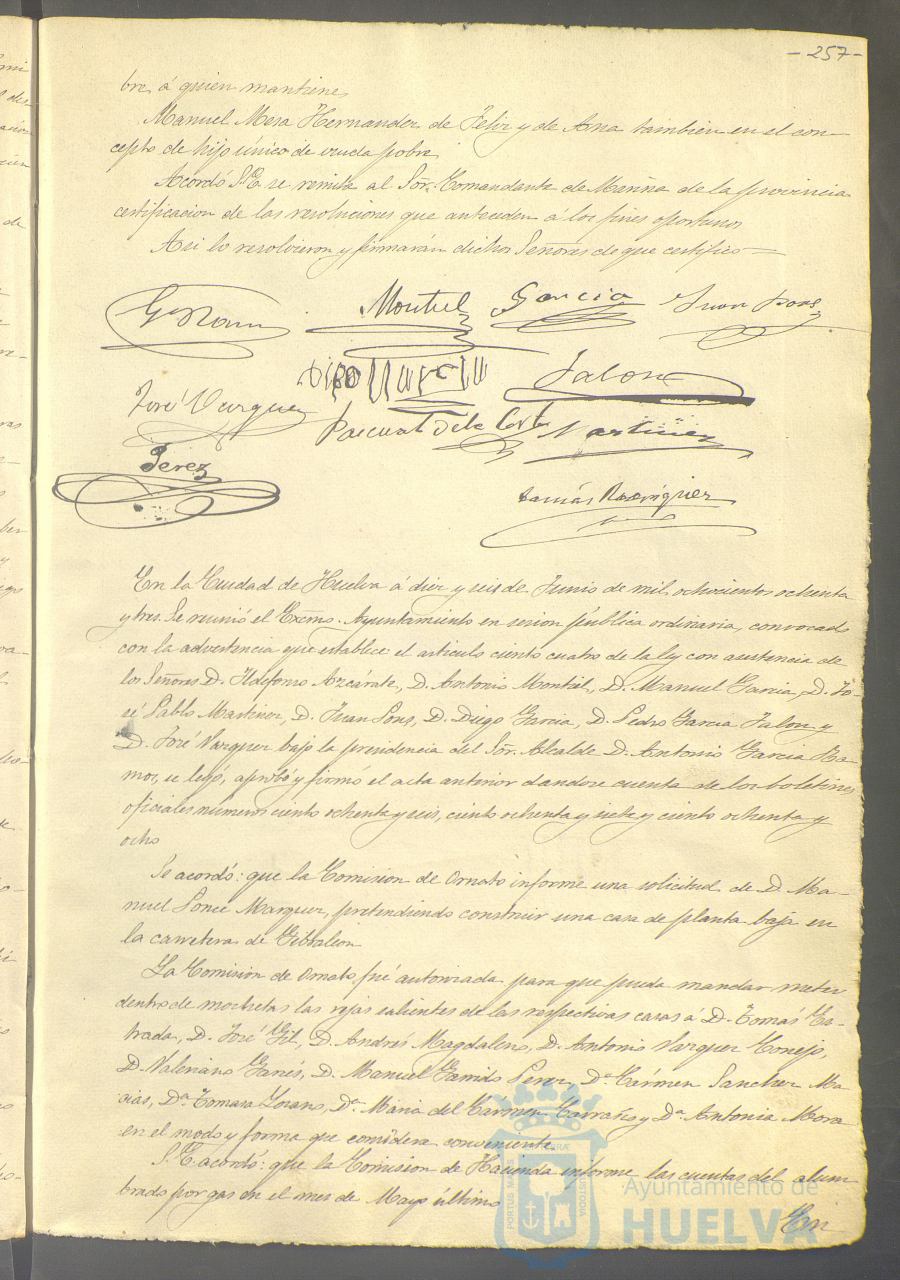 - 257 -
bre á quien mantiene
Manuel Mora Hernandez de Felix y de Ana tambien en el con-
cepto de hijo único de viuda pobre
Acordó S.E. se remita al Sor. Comandante de Marina de la provincia
certificacion de las resoluciones que anteceden á los fines oportunos
Asi lo resolvieron y firmarán dichos Señores de que certifico
Montiel García Juan Pons
Jalon
José Vazquez Pascual de la Corte Martinez
Perez
Tomás Rodriguez
En la Ciudad de Huelva á diez y seis de Junio de mil ochocientos ochenta
y tres. Se reunió el Excmo. Ayuntamiento en sesion pública ordinaria, convocado
con la advertencia que establece el articulo ciento cuatro de la ley con asistencia de
los Señores D. Ildefonso Azcárate, D. Antonio Montiel, D. Manuel Garcia, D. Jo-
sé Pablo Martinez, D. Juan Pons, D. Diego Garcia, D. Pedro Garcia Jalon y
D. José Vazquez bajo la presidencia del Sor. Alcalde D. Antonio Garcia Ra-
mos, se leyó, aprobó y firmó el acta anterior dandose cuenta de los boletines
oficiales números ciento ochenta y seis, ciento ochenta y siete y ciento ochenta y
ocho
Se acordó: que la Comision de Ornato informe una solicitud de D. Ma-
nuel Ponce Marquez, pretendiendo construir una casa de planta baja en
la carretera de Gibraleon
La Comision de Ornato fué autorizada para que pueda mandar meter
dentro de mochetas las rejas salientes de las respectivas casas á D. Tomás Es-
trada, D. José Gil, D. Andrés Magdaleno, D. Antonio Vazquez Conejo,
D. Valeriano Ganés, D. Manuel Garrido Perez, Da. Cármen Sanchez Ma-
cias, Da. Tomasa Lozano, Da. Maria del Carmen Carraño y Da. Antonia Mora
en el modo y forma que considera conveniente
S.E. acordó: que la Comision de Hacienda informe las cuentas del alum
brado por gas en el mes de Mayo último
En
PORTUS MARIS ET TERRAE CUSTODIA
Ayuntamiento de
HUELVA